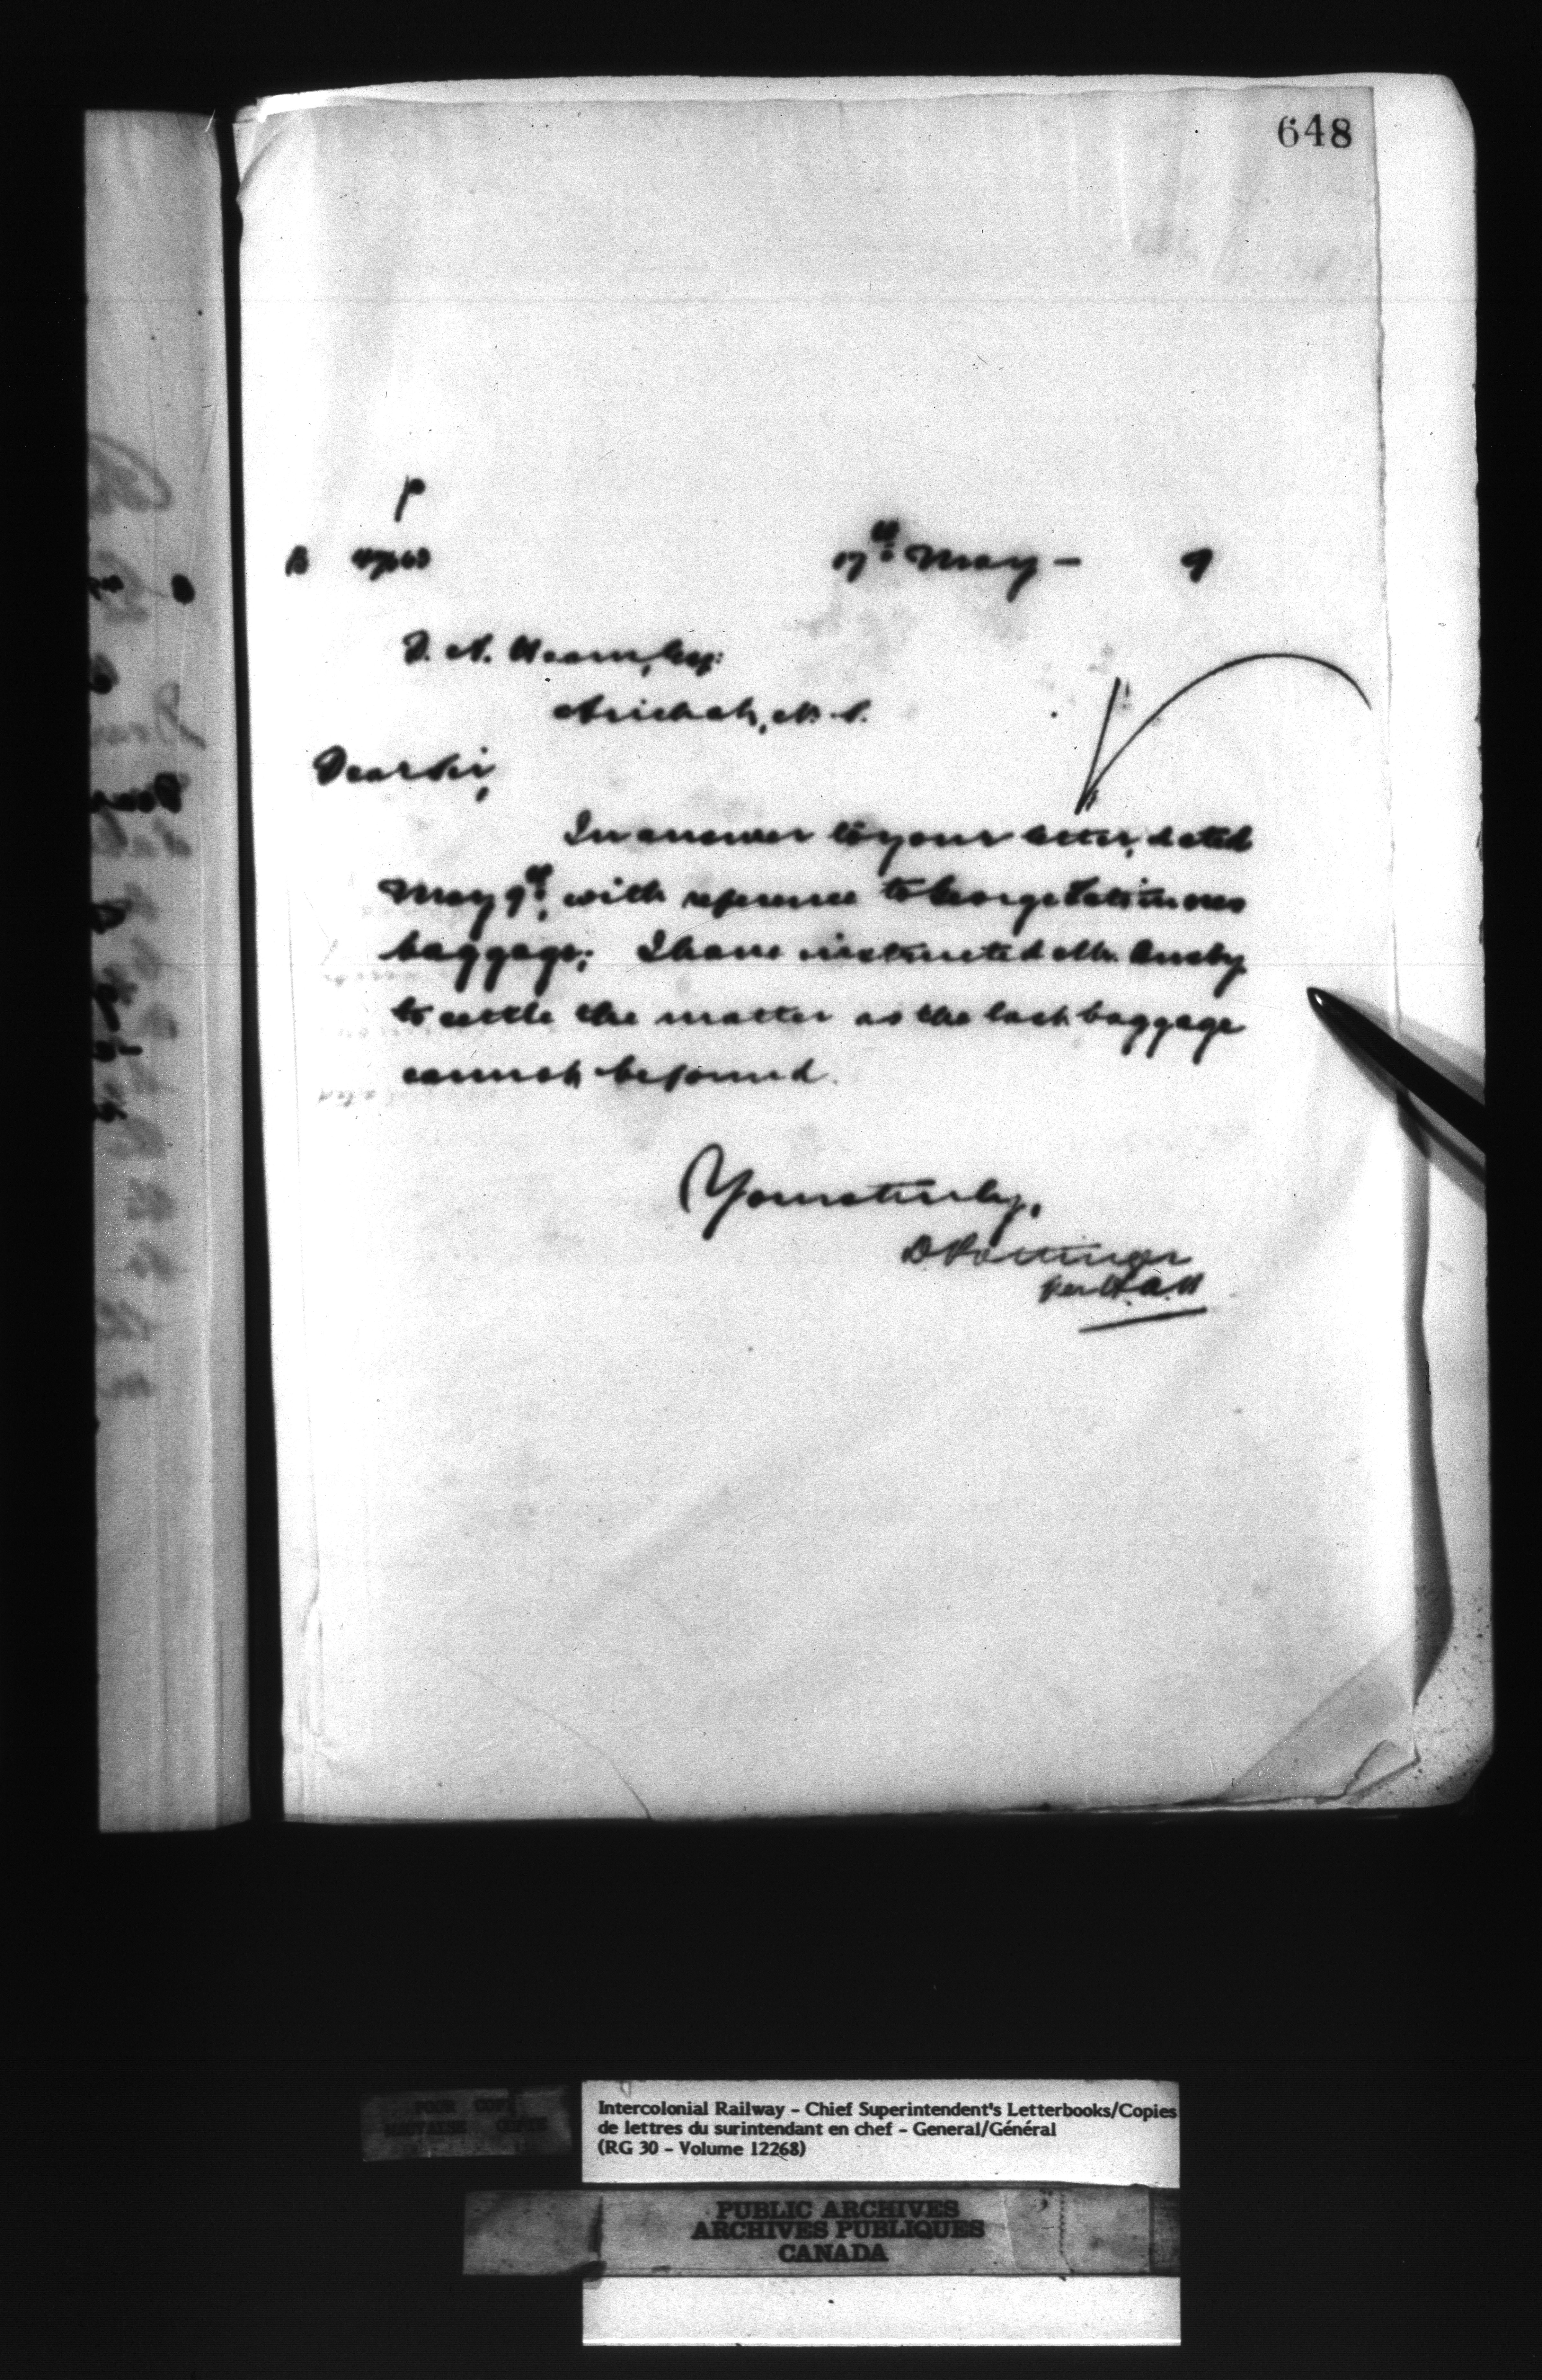 648
P
17th May - 9
Arichat, N.S.
Dear Sir,
In answer to your letter, dated
May 9th, with reference to George
baggage; I have instructed Mr. Busby
to settle the matter as the lost baggage
cannot be found.
Yours truly,
D. Pottinger
per
POOR COPY
MAUVAISE COPIE
Intercolonial Railway - Chief Superintendent's Letterbooks/Copies
de lettres du surintendant en chef - General/Général
(RG 30 - Volume 12268)
PUBLIC ARCHIVES
ARCHIVES PUBLIQUES
CANADA